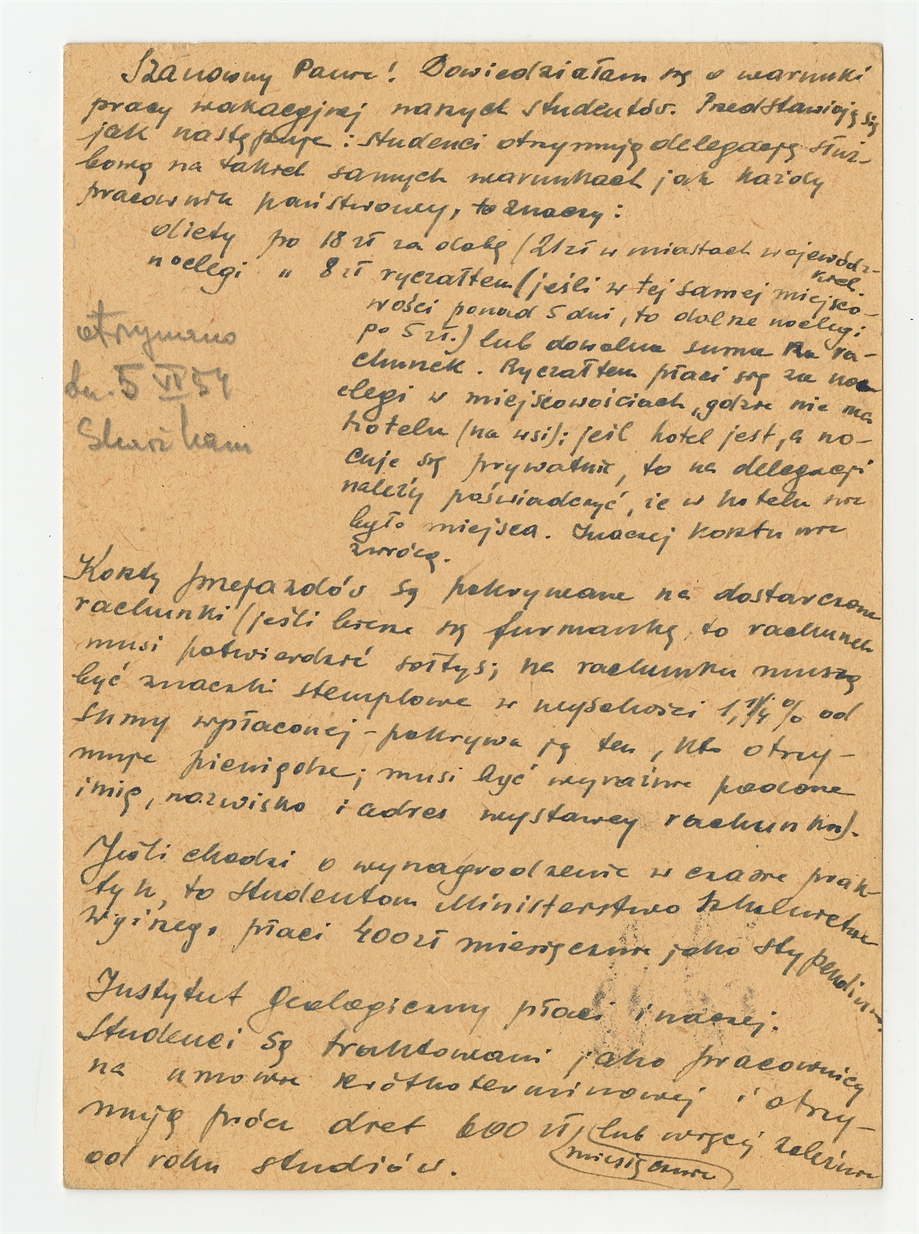 Szanowny Panie! Dowiedziałam się o warunki
pracy wakacyjnej naszych studentów. Przedstawiają się
jak następuje: studenci otrzymują delegację służ-
bową na takich samych warunkach jak każdy
pracownik państwowy, to znaczy:
diety po 18 zł za dobę (21 zł w miastach wojewódz-
kich.
noclegi „ 8 zł ryczałtem (jeśli w tej samej miejsco-
wości ponad 5 dni, to dalsze noclegi
po 5 zł.) lub dowolna suma na ra-
chunek. Ryczałtem płaci się za no
clegi w miejscowościach, gdzie nie ma
hotelu (na wsi); jeśl hotel jest, a no-
cuje się prywatnie, to na delegacji
należy poświadczyć, że w hotelu nie
było miejsca. Inaczej kosztu nie
zwrócą.
otrzymano
dn. 5 VI 54
Koszty przejazdów są pokrywane na dostarczone
rachunki (jeśli bierze się furmankę, to rachunek
musi potwierdzić sołtys; na rachunku muszą
być znaczki stemplowe w wysokości % od
sumy wpłaconej - pokrywa ją ten, kto otrzy-
muje pieniądze; musi być wyraźnie podane
imię, nazwisko i adres wystawcy rachunku).
Jeśli chodzi o wynagrodzenie w czasie prak-
tyk, to studentom Ministerstwo Szkolnictwa
Wyższego płaci 400 zł miesięcznie jako stypendium.
Instytut Geologiczny płaci inaczej.
Studenci są traktowani jako pracownicy
na umowie krótkoterminowej i otrzy-
mują prócz diet 600 zł, lub więcej zależnie
miesięcznie
od roku studiów.